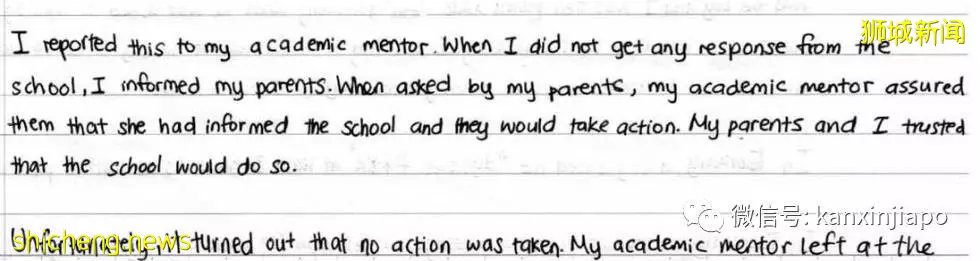 狮城新闻
I reported this to my academic mentor. When I did not get any response from the
school, I informed my parents. When asked by my parents, my academic mentor assured
them that she had informed the school and they would take action. My parents and I trusted
that the school would do so.
微信号: kanxinjiapo
shicheng.news
Unfortunately, it turned out that no action was taken. My academic mentor left at the